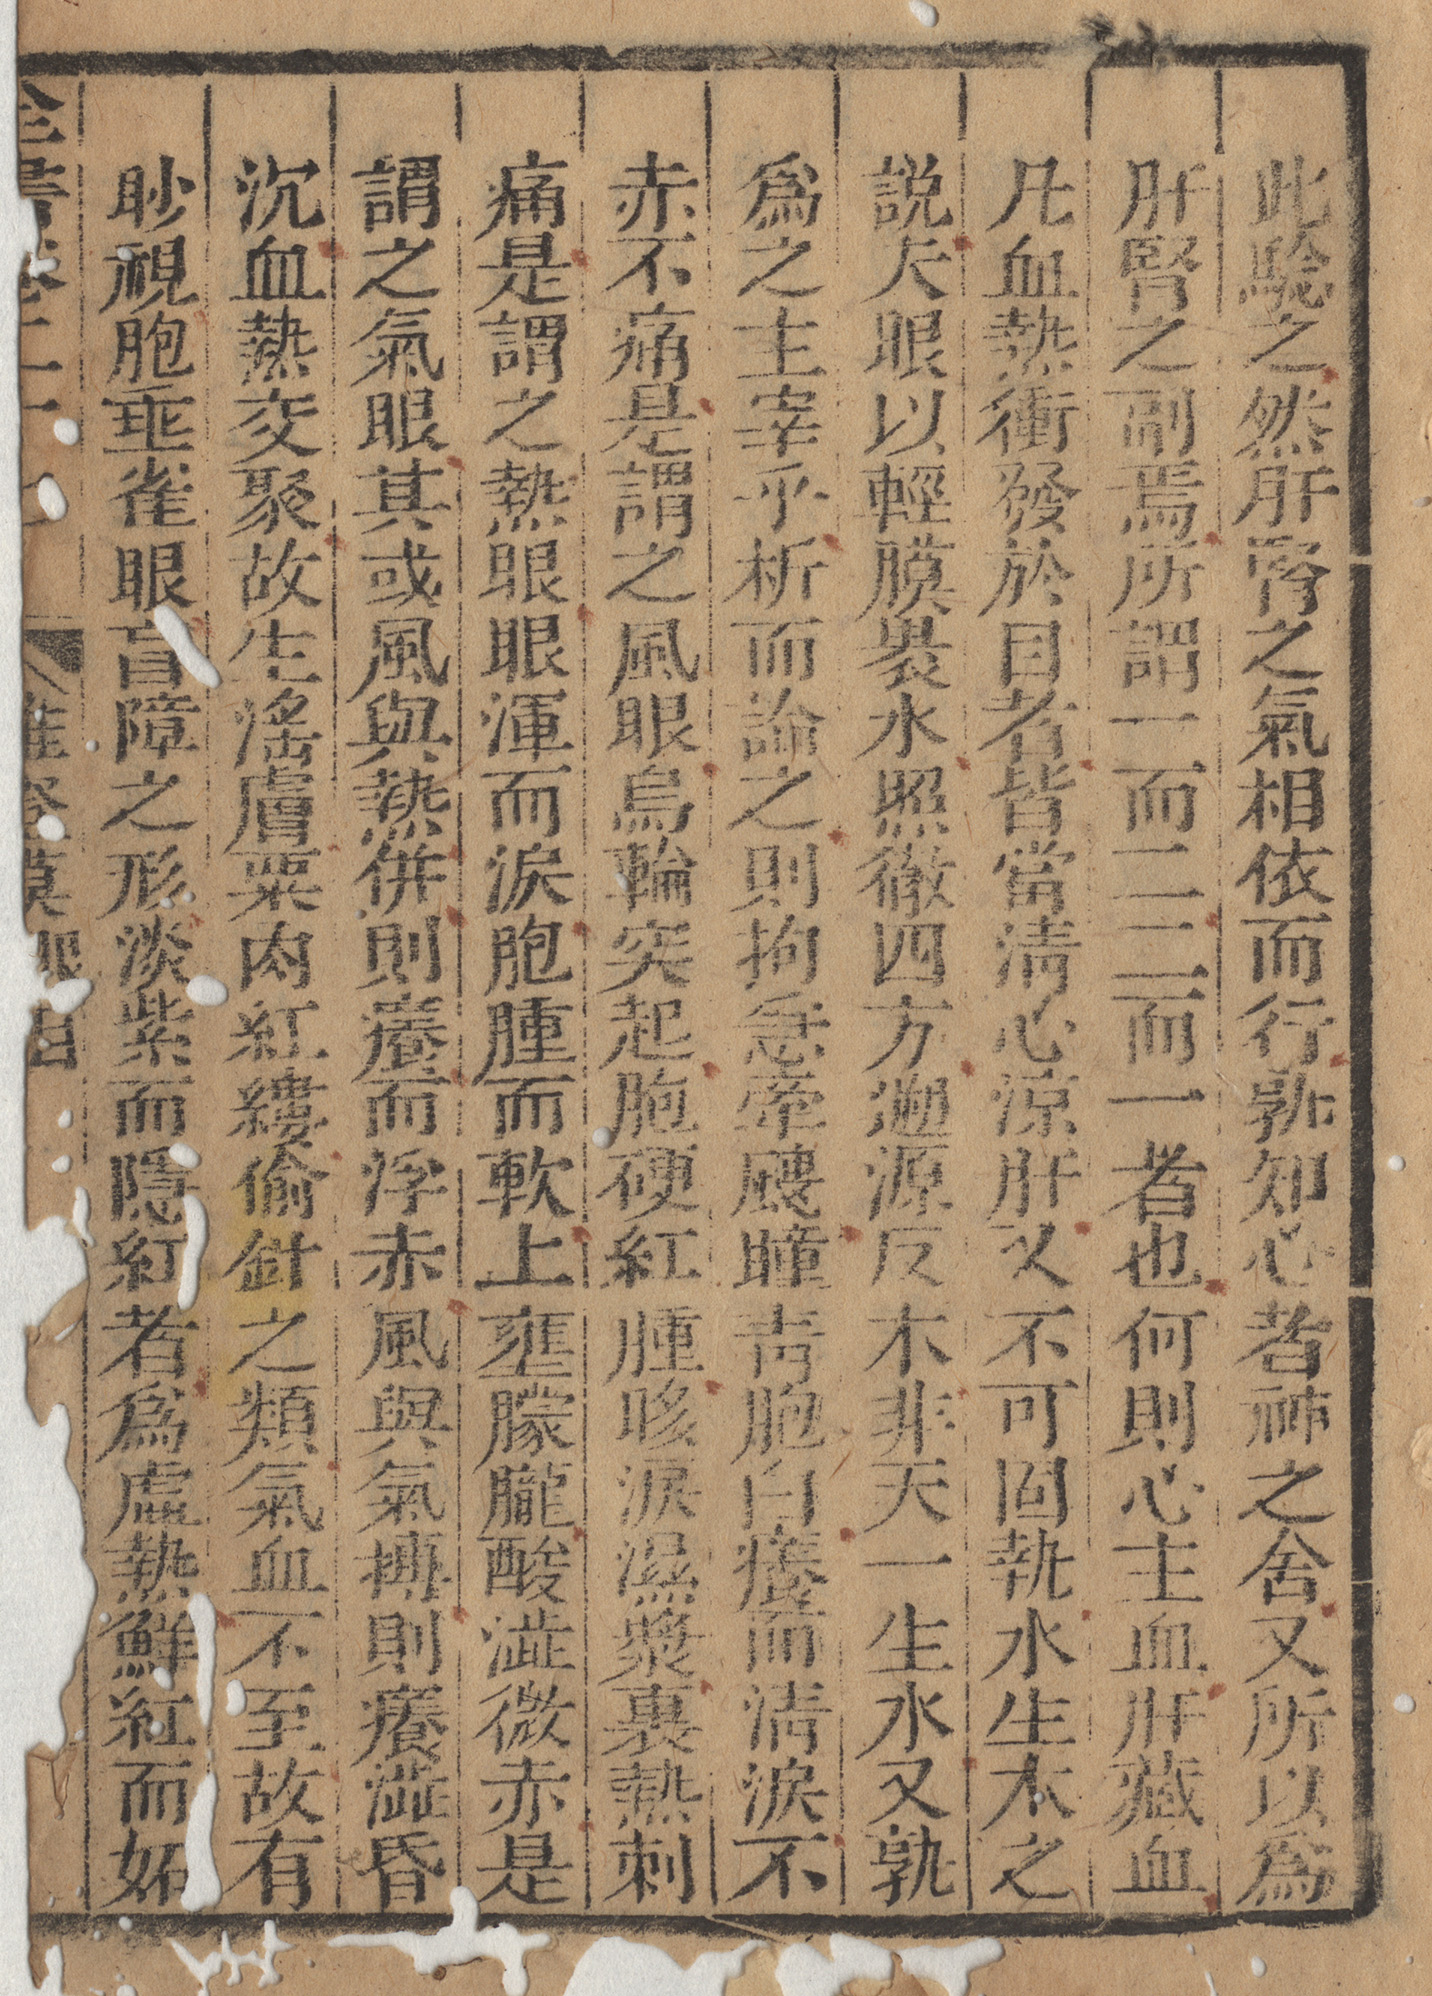 此驗之然肝腎之氣相依而行孰知心者神之舍又所以爲
肝腎之副焉所謂一而二二而一者也何則心主血肝藏血
凡血熱衝發於目者皆當清心涼肝又不可固執水生木之
説夫眼以輕膜裝水照徹四方遡源反本非天一生水又孰
爲之主宰乎析而論之則拘急牽飃瞳青胞白癢而清淚不
赤不痛是謂之風眼烏輪突起胞硬紅腫眵淚濕漿裏熱刺
痛是謂之熱眼眼渾而淚胞腫而軟上壅朦朧酸澁微赤是
謂之氣眼其或風與熱併則癢而浮赤風與氣搏則癢澁昏
沉血熱交聚故生滛膚粟肉紅縷偷針之類氣血不至故有
眇視胞垂雀眼盲障之形淡紫而隱紅者爲虛熱鮮紅而妬
全書卷二十七 准繩 眼目